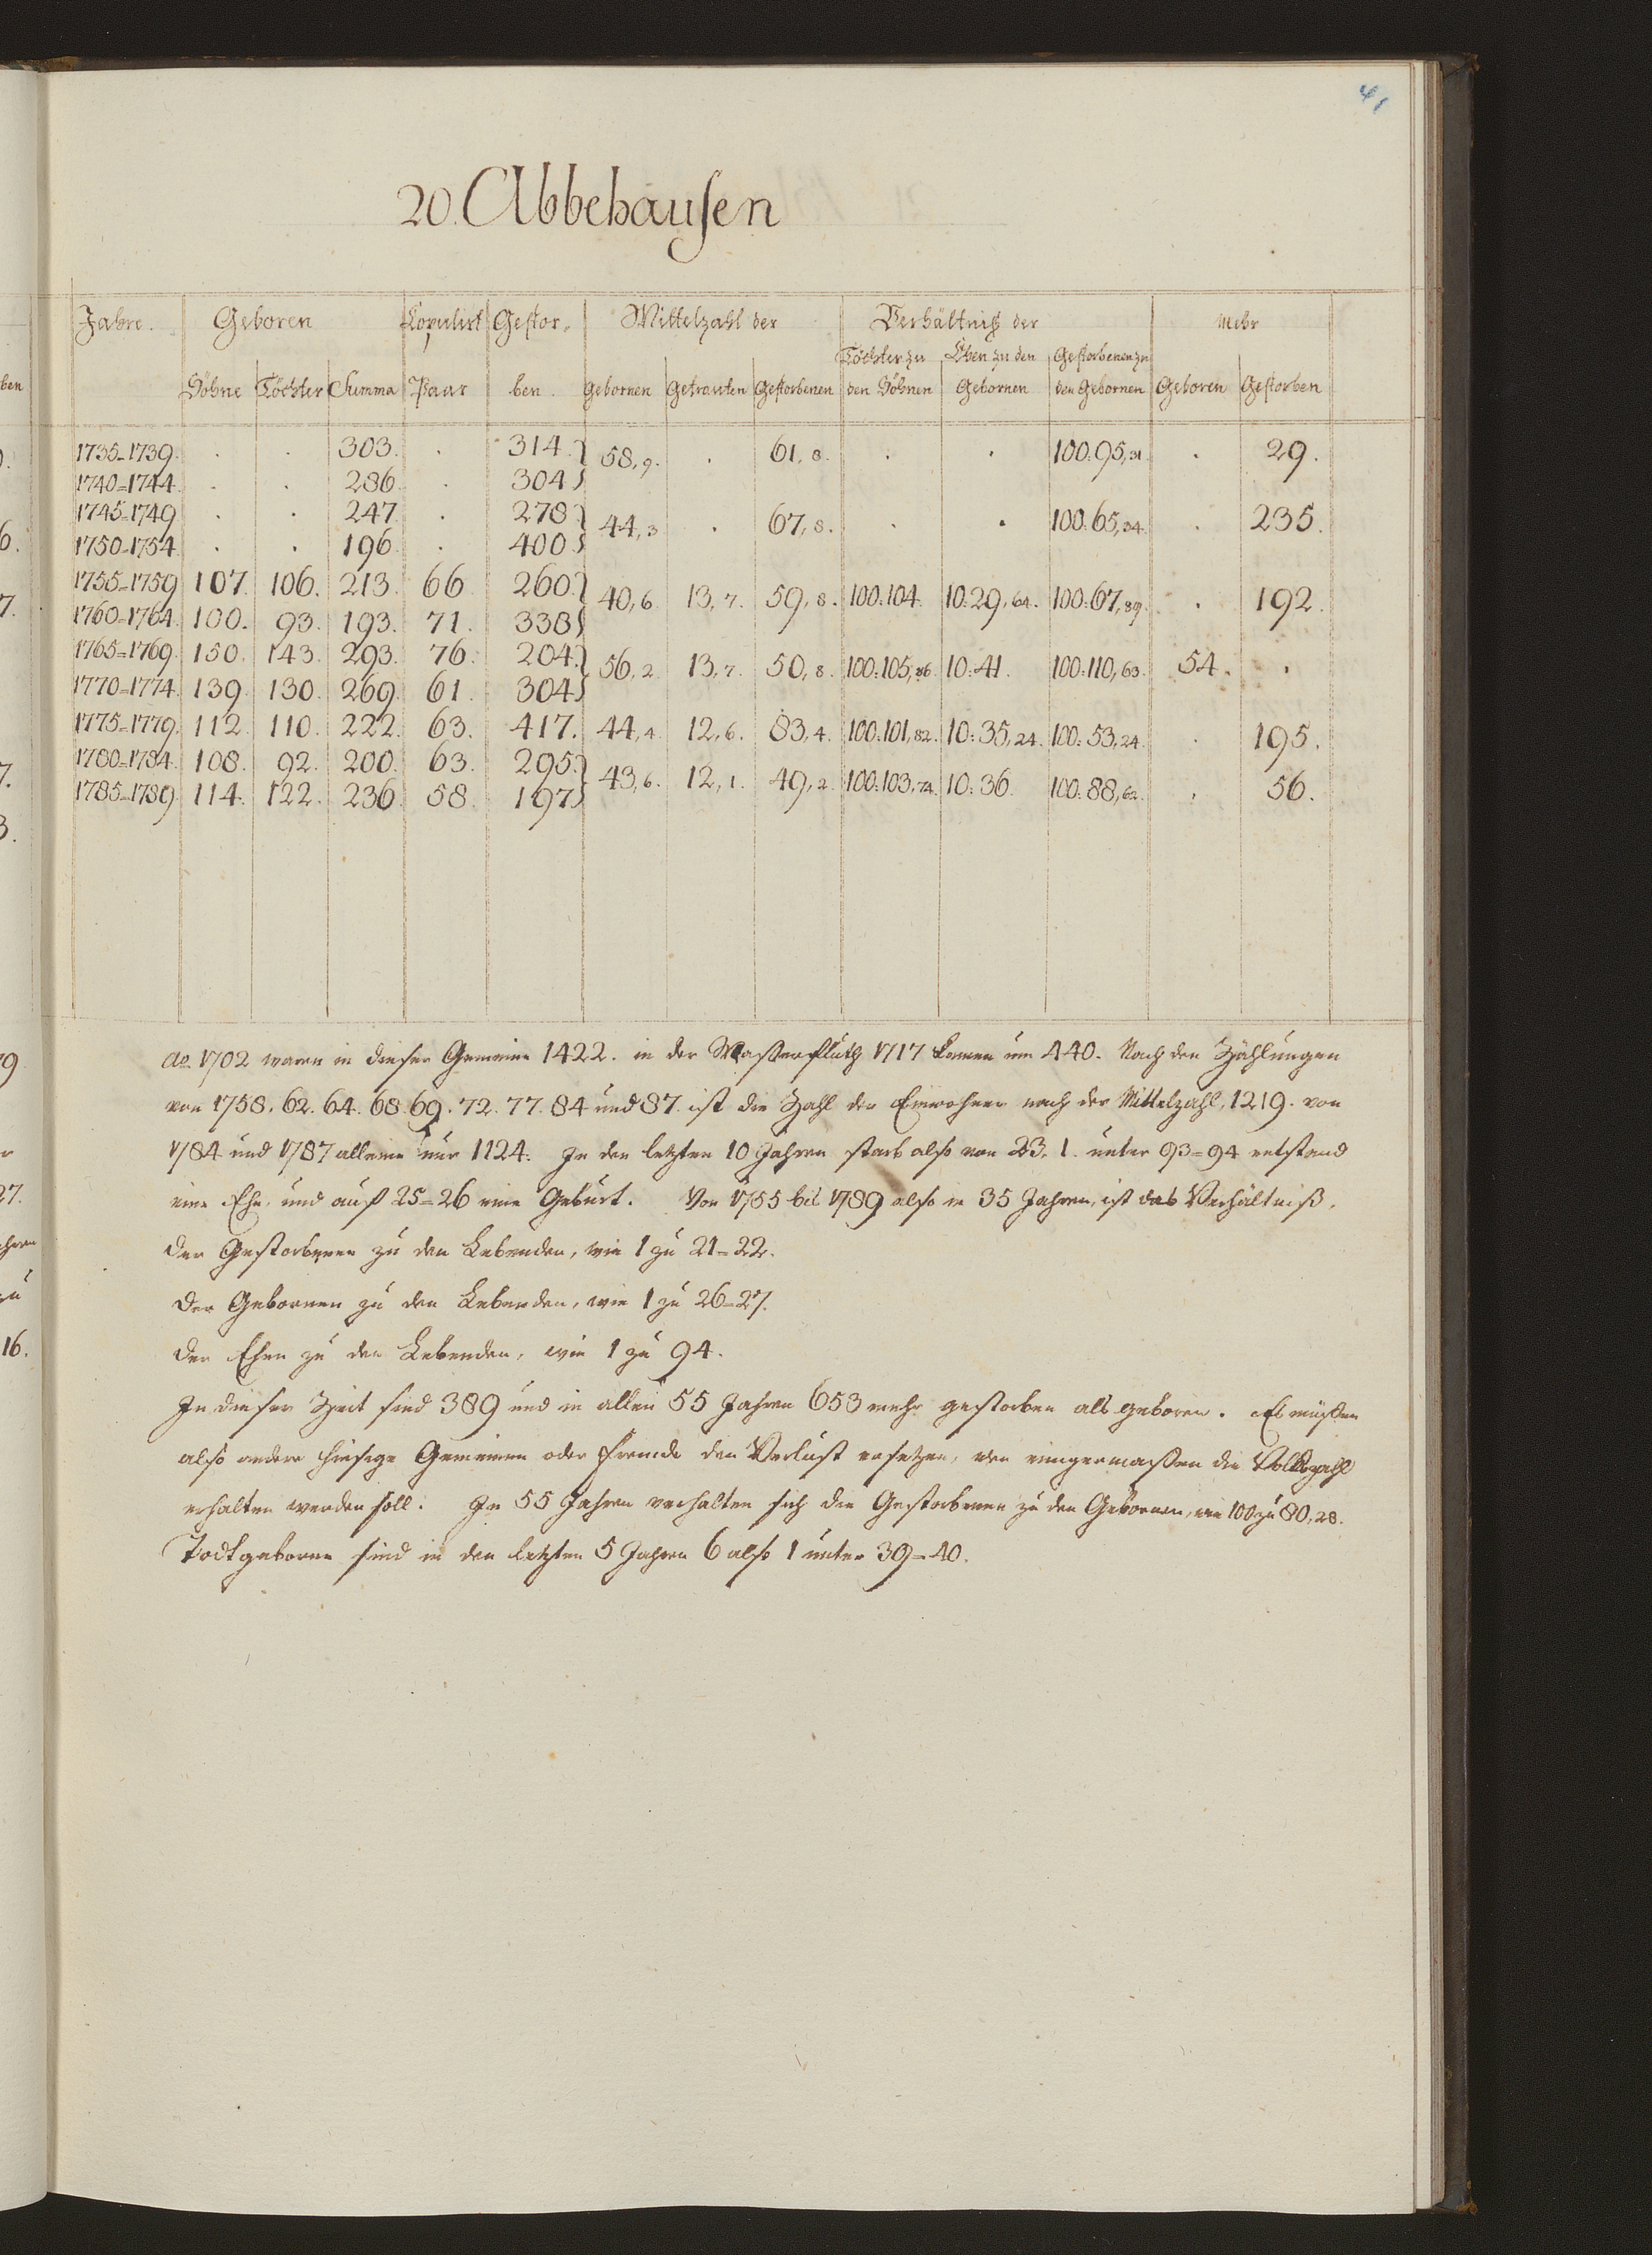 41
20. Abbehausen
Jahre. Geboren Kopulirt Gestor- Mittelzahl der Verhältniß der Mehr
Töchter zu Ehen zu den Gestorbenen zu
Söhne Töchter Summa Paar ben. Gebornen Getrauten Gestorbenen den Söhnen Gebornen den Gebornen Geboren Gestorben
1735-1739. . . 303. . 314. 58,9. . 61,8. . . 100:95,31. . 29.
1740=1744. . . 286. . 304
1745=1749 . . 247. . 278 44,3 . 67,8. . . 100:65,34. . 235.
1750-1754. . . 196. . 400
1755=1759 107. 106. 213. 66 260. 40,6. 13,7. 59,8. 100:104. 10:29,64. 100:67,89. . 192.
1760=1764. 100. 93. 193. 71. 338
1765=1769. 150. 143. 293. 76. 204. 56,2. 13,7. 50,8. 100:105,86. 10:41. 100:110,63. 54. .
1770=1774. 139. 130. 269. 61. 304
1775=1779. 112. 110. 222. 63. 417. 44,4. 12,6. 83,4. 100:101,82. 10:35,24. 100:53,24. . 195.
1780=1784. 108. 92. 200. 63. 295. 43,6. 12,1. 49,2. 100:103,74. 10:36. 100:88,62. . 56.
1785=1789 114. 122. 236. 58. 197
ao. 1702 waren in dieser Gemeine 1422. in der Waßerfluth 1717 kamen um 440. Nach den Zählungen
von 1758. 62. 64. 68. 69. 72. 77. 84 und 87. ist die Zahl der Einwohner nach der Mittelzahl, 1219. von
1784 und 1787 alleine nur 1124. In den letzten 10 Jahren starb also von 23. 1. unter 93=94 entstand
eine Ehe, und auf 25=26 eine Geburt. Von 1755 bis 1789 also in 35 Jahren, ist das Verhältniß,
der Gestorbenen zu den Lebenden, wie 1 zu 21=22.
der Gebornen zu den Lebenden, wie 1 zu 26=27.
der Ehen zu den Lebenden, wie 1 zu 94.
In dieser Zeit sind 389 und in allen 55 Jahren 653 mehr gestorben als geboren. Es müßen
also andere hiesige Gemeinen oder Fremde den Verlust ersetzen, wen einigermaßen die Volkszahl
erhalten werden soll. In 55 Jahren verhalten sich die Gestorbenen zu den Gebornen, wie 100 zu 80,28.
Todtgeborne sind in den letzten 5 Jahren 6 also 1 unter 39=40.